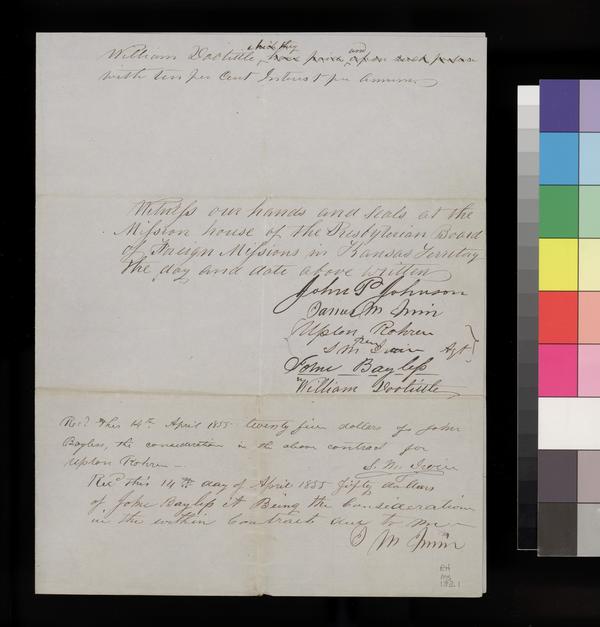 said they
William Doolittle, have paid, and upon such
with ten per Cent Interest per annum
Witness our hands and seals at the
Mission house of the Presbyterian Board
of Foreign Missions in Kansas Territory
the day and date above written
John P Johnson
James M Irvin
Upton Rohrer
S M Irvin Agt
John Bayless
William Doolittle
Recd this 14th April 1855 twenty five dollars of John
Bayless, the consideration in the above contract for
Upton Rohrer
S. M. Irvin
Recd this 14th day of April 1855 fifty dollars
of John Bayless it Being the Consideration
in the within Contract due to me
J M Irvin
RH
MS
192.1